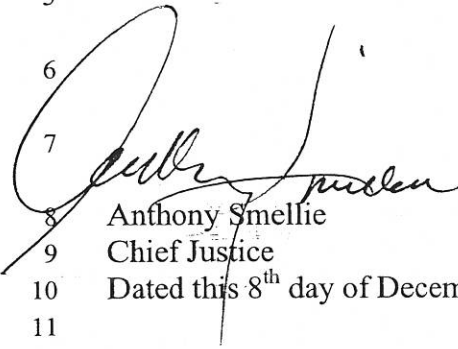 6
7
8 Anthony Smellie
9 Chief Justice
10 Dated this 8th day of Decem
11